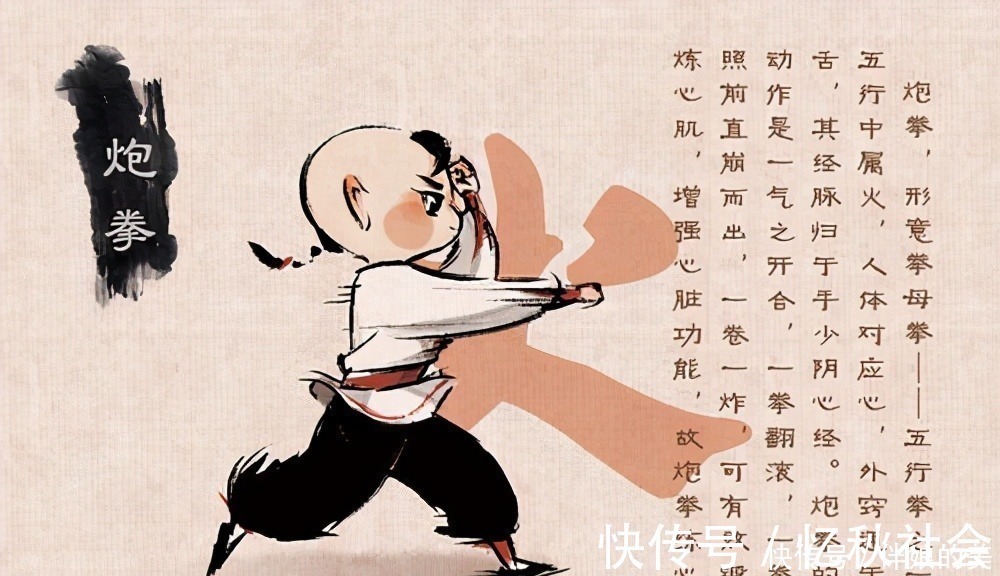 炮拳
炮拳，形意拳母拳——五行拳
五行中属火，人体对应心，外窍
舌，其经脉归于手少阴心经。炮拳的
动作是一气之开合，一拳翻滚，一拳
照前直崩而出，一卷一炸，可有效
炼心肌，增强心脏功能，故炮拳炼心
快传号 / 忆秋社会
快传号